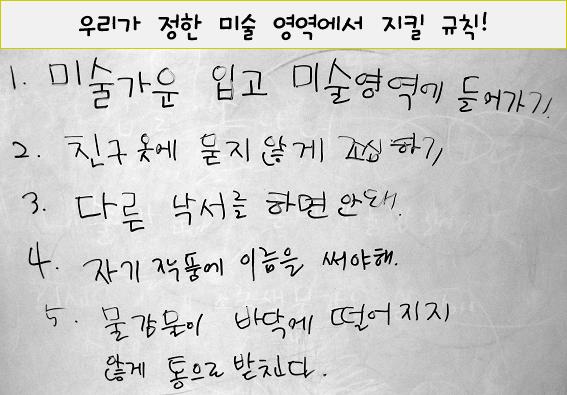 우리가 정한 미술 영역에서 지킬 규칙!
1. 미술가운 입고 미술영역에 들어가기!
2. 친구 옷에 묻지 않게 조심하기
3. 다른 낙서를 하면 안돼.
4. 자기 작품에 이름을 써야해.
5. 물감물이 바닥에 떨어지지
않게 통으로 받친다.